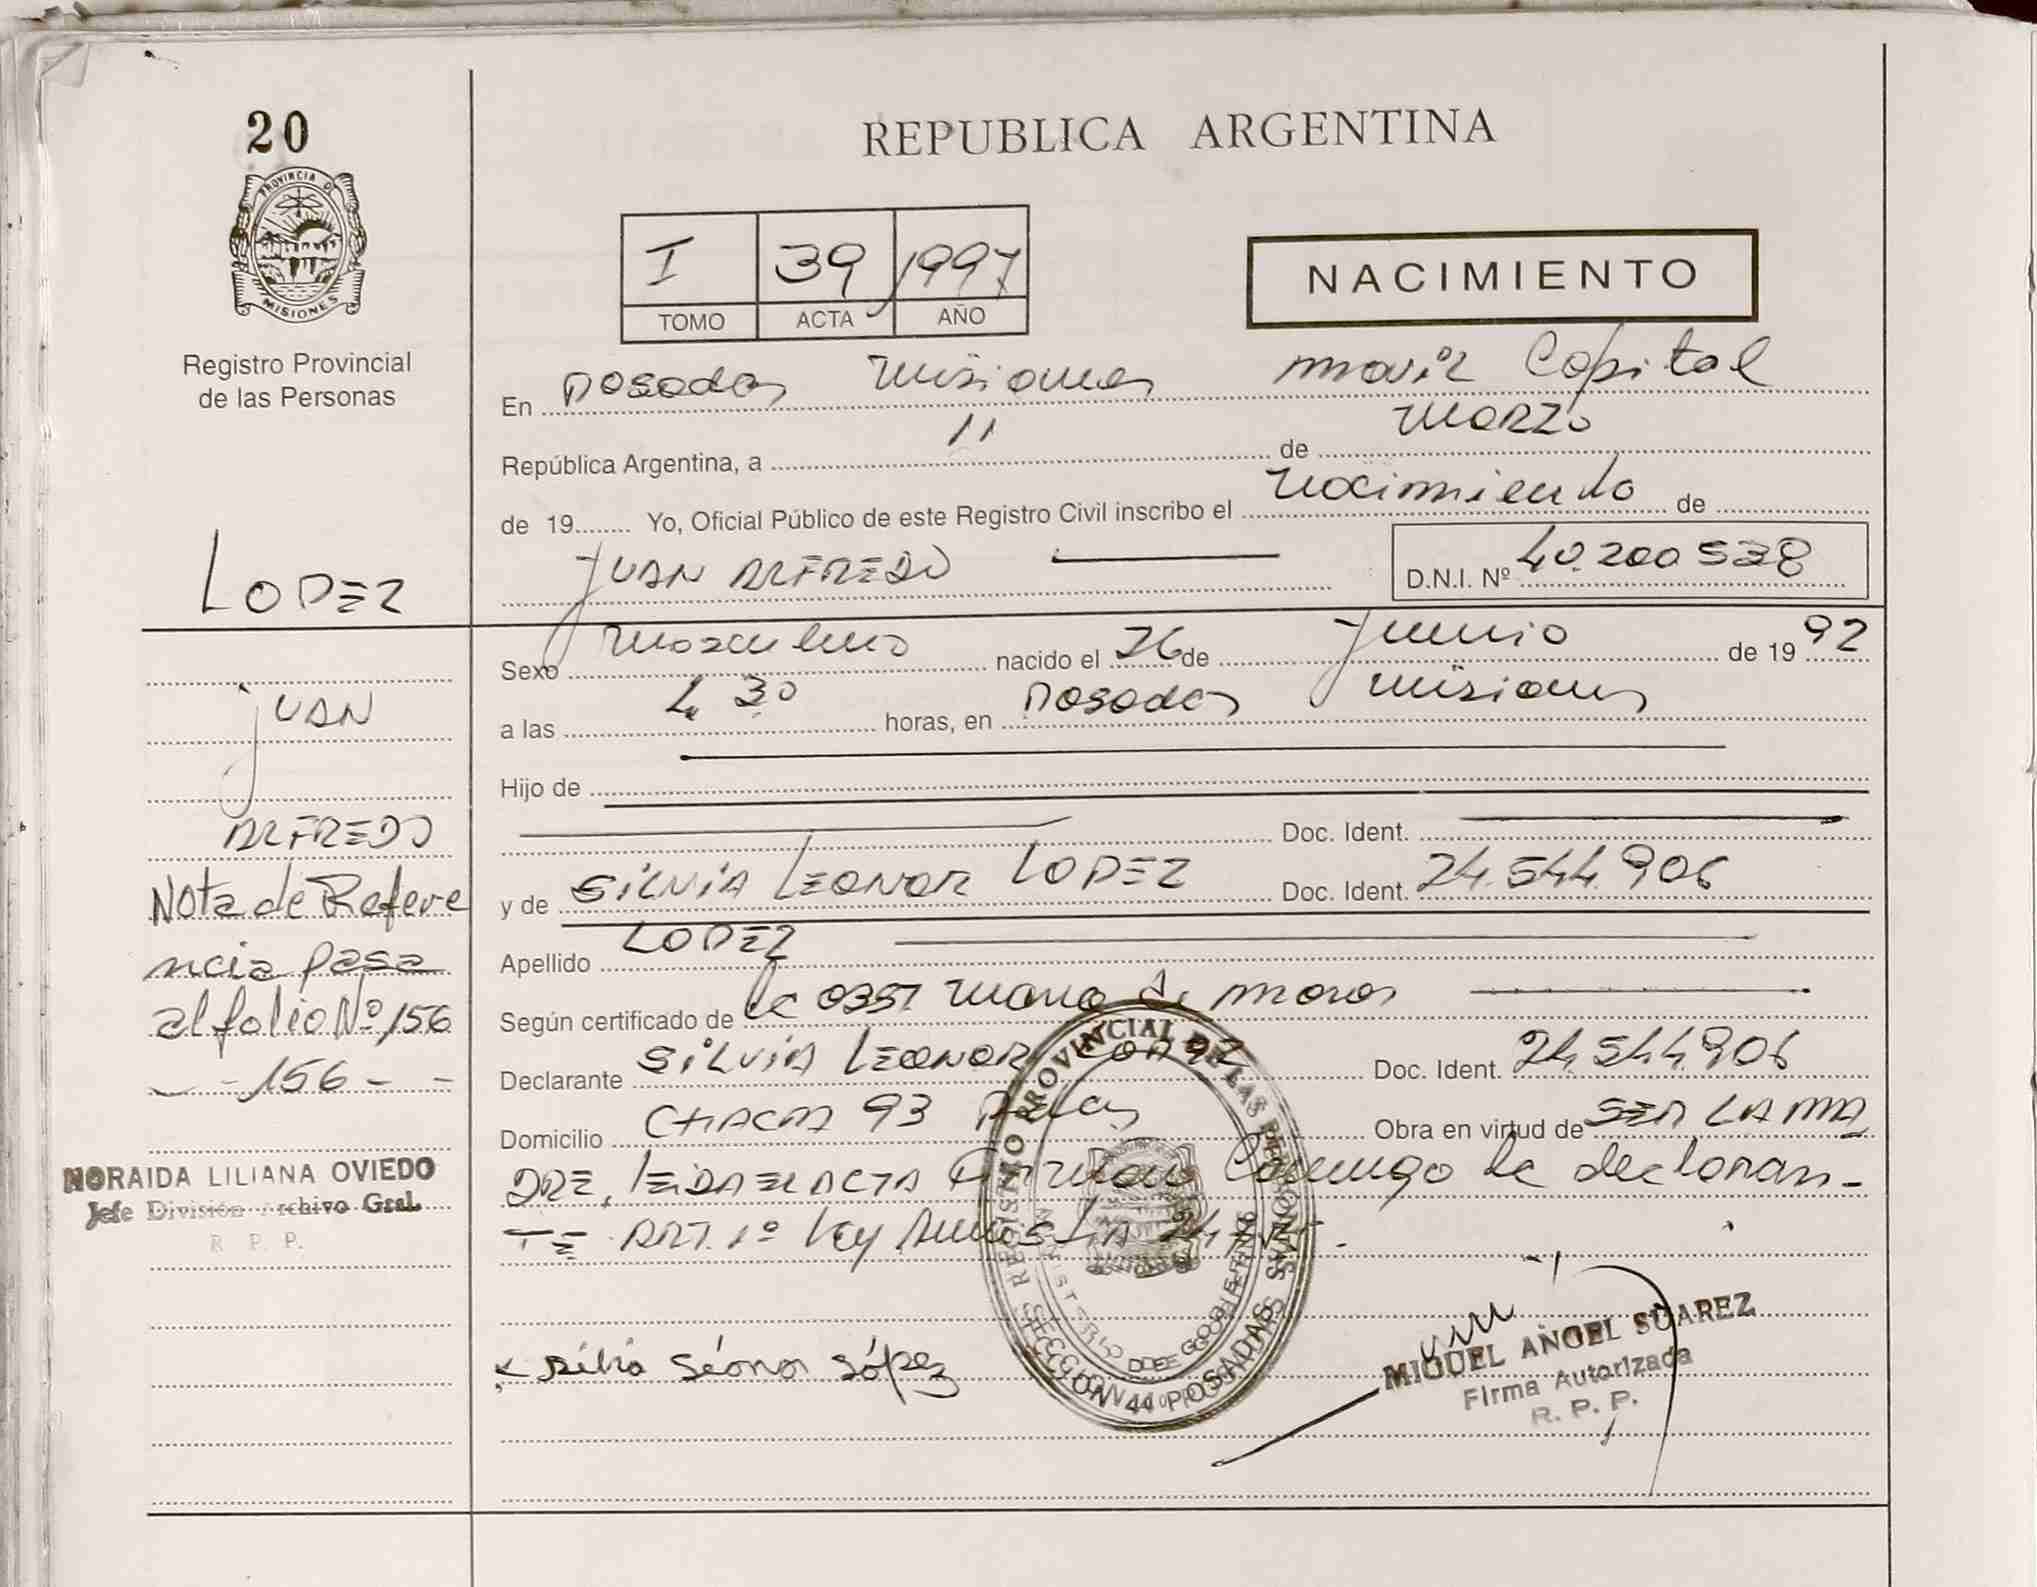 20
PROVINCIA DE
MISIONES
Registro Provincial
de las Personas
LOPEZ
JUAN
ALFREDO
Nota de Refere
ncia pasa
al folio Nº 156
- - 156 - -
NORAIDA LILIANA OVIEDO
Jefe División Archivo Gral.
R. P. P.
REPUBLICA ARGENTINA
I 39 1997
TOMO ACTA AÑO
NACIMIENTO
En Posadas Misiones Movil Capital
República Argentina, a 11 de Marzo
de 19........ Yo, Oficial Público de este Registro Civil inscribo el Nacimiento de
JUAN ALFREDO D.N.I. Nº 40.200538
Sexo Masculino nacido el 26 de Junio de 19 92
a las 4 30 horas, en Posadas Misiones
Hijo de
Doc. Ident.
y de SILVIA LEONOR LOPEZ Doc. Ident. 24.544.906
Apellido LOPEZ
Según certificado de la 0357
Declarante SILVIA LEONOR LOPEZ Doc. Ident. 24.544.906
Domicilio CHACRA 93 Obra en virtud de SER LA MA
DRE, LEIDA EL ACTA Firman Conmigo la declaran-
TE ART. 1º Ley
Silvia Leonor López
REGISTRO PROVINCIAL DE LAS PERSONAS
POSADAS
MIGUEL ANGEL SUAREZ
Firma Autorizada
R. P. P.